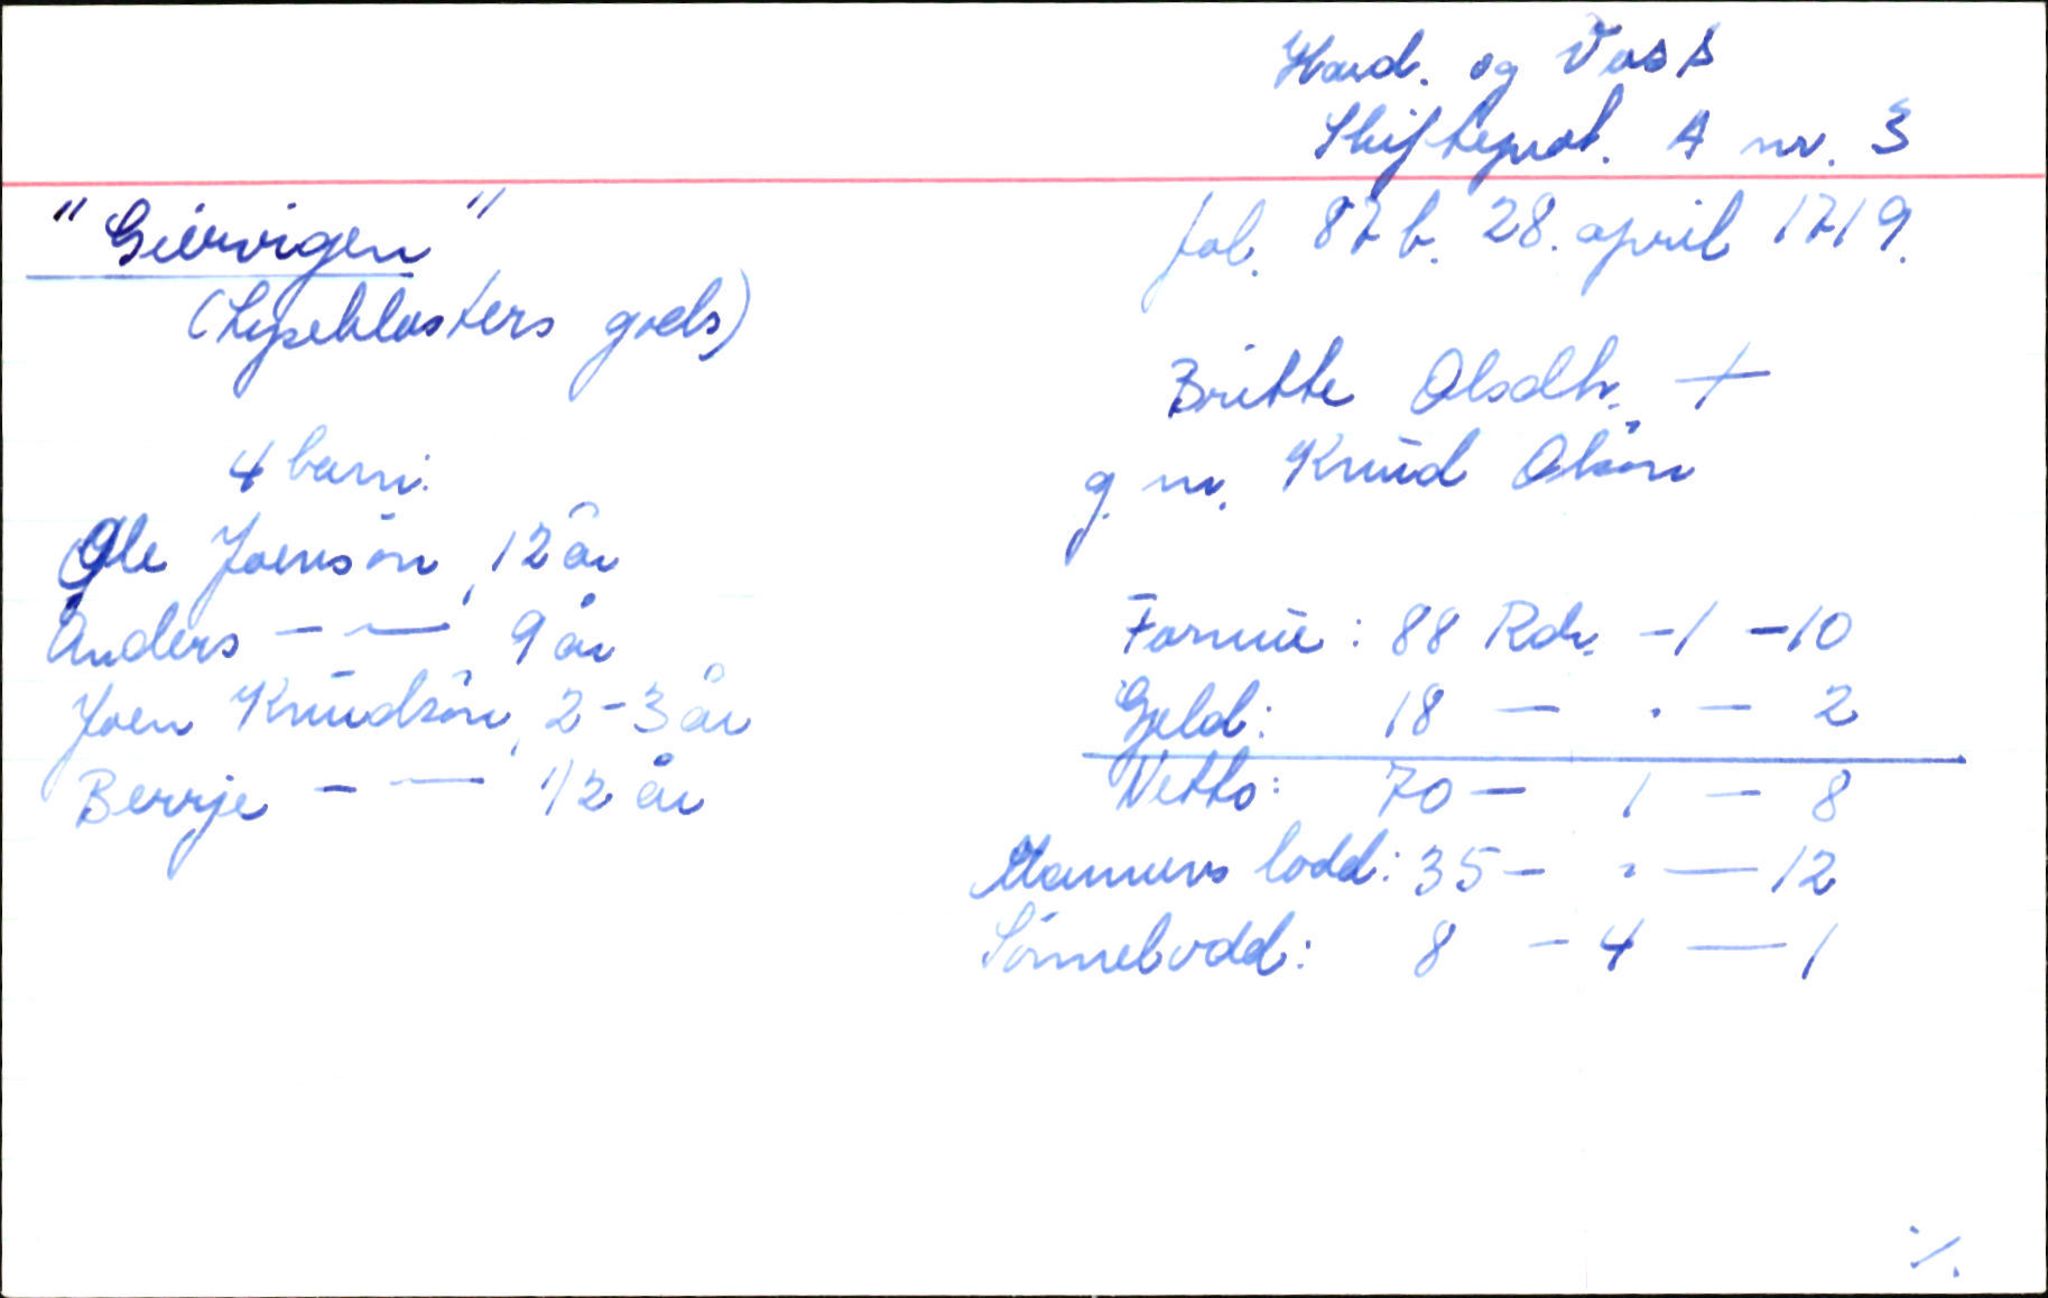 Hard. og Voss
Skifteprot. A nr. 3
fol. 87 b. 28. april 1719.
"Giervigen"
(Lyseklosters gods)
Britte Olsdtr. +
g. m. Knud Olsön
4 barn:
Ole Joensön, 12 år
Anders — — 9 år
Joen Knudsön, 2-3 år
Berrje — — 1/2 år
Formue: 88 Rdr. - 1 - 10
Gjeld: 18 — . — 2
Netto: 70 — 1 — 8
Mannens lodd: 35 — . — 12
Sönnelodd: 8 — 4 — 1
./.